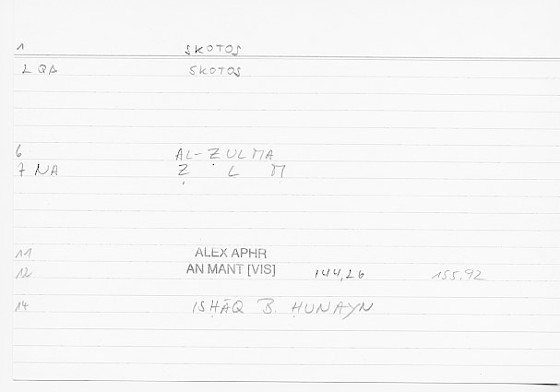 1 SKOTOS
2 QA SKOTOS
6 AL-ẒULMA
7 NA Ẓ L M
11 ALEX APHR
12 AN MANT [VIS] 144,26 155.92
14 ISḤĀQ B. ḤUNAYN